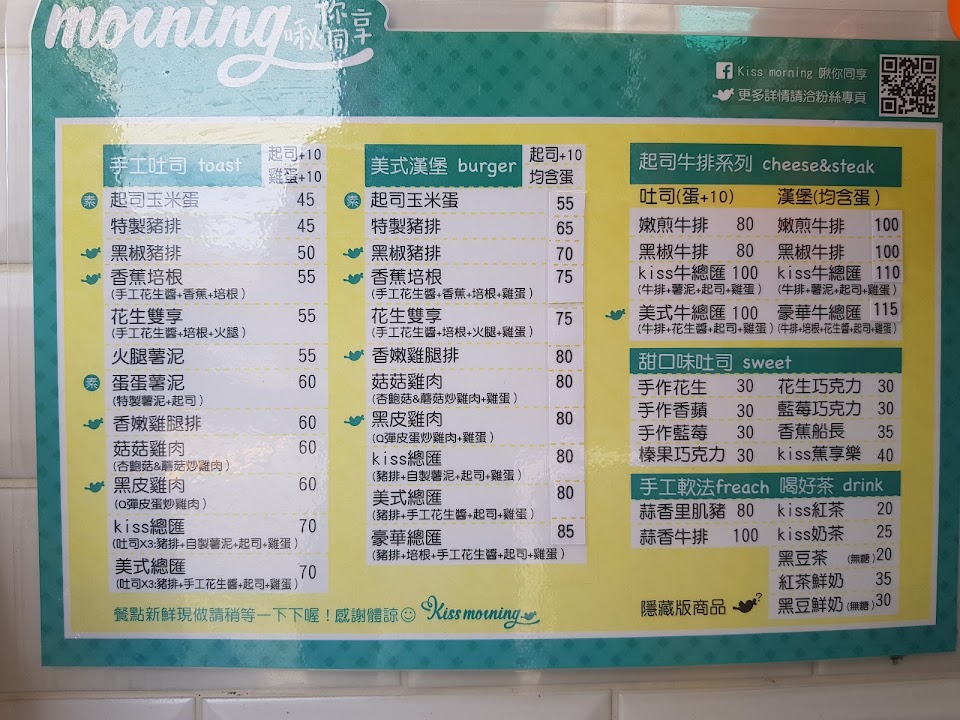 morning 啾你同享
Kiss morning 啾你同享
更多詳情請洽粉絲專頁
手工吐司 toast 起司+10 雞蛋+10
素 起司玉米蛋 45
特製豬排 45
黑椒豬排 50
香蕉培根 55
(手工花生醬+香蕉+培根)
花生雙享 55
(手工花生醬+培根+火腿)
火腿薯泥 55
素 蛋蛋薯泥 60
(特製薯泥+起司)
香嫩雞腿排 60
菇菇雞肉 60
(杏鮑菇&蘑菇炒雞肉)
黑皮雞肉 60
(Q彈皮蛋炒雞肉)
kiss總匯 70
(吐司X3:豬排+自製薯泥+起司+雞蛋)
美式總匯 70
(吐司X3:豬排+手工花生醬+起司+雞蛋)
美式漢堡 burger 起司+10 均含蛋
素 起司玉米蛋 55
特製豬排 65
黑椒豬排 70
香蕉培根 75
(手工花生醬+香蕉+培根+雞蛋)
花生雙享 75
(手工花生醬+培根+火腿+雞蛋)
香嫩雞腿排 80
菇菇雞肉 80
(杏鮑菇&蘑菇炒雞肉+雞蛋)
黑皮雞肉 80
(Q彈皮蛋炒雞肉+雞蛋)
kiss總匯 80
(豬排+自製薯泥+起司+雞蛋)
美式總匯 80
(豬排+手工花生醬+起司+雞蛋)
豪華總匯 85
(豬排+培根+手工花生醬+起司+雞蛋)
起司牛排系列 cheese&steak
吐司(蛋+10) 漢堡(均含蛋)
嫩煎牛排 80 嫩煎牛排 100
黑椒牛排 80 黑椒牛排 100
kiss牛總匯 100 kiss牛總匯 110
(牛排+薯泥+起司+雞蛋) (牛排+薯泥+起司+雞蛋)
美式牛總匯 100 豪華牛總匯 115
(牛排+花生醬+起司+雞蛋) (牛排+培根+花生醬+起司+雞蛋)
甜口味吐司 sweet
手作花生 30 花生巧克力 30
手作香蘋 30 藍莓巧克力 30
手作藍莓 30 香蕉船長 35
榛果巧克力 30 kiss蕉享樂 40
手工軟法freach 喝好茶 drink
蒜香里肌豬 80 kiss紅茶 20
蒜香牛排 100 kiss奶茶 25
黑豆茶 (無糖) 20
紅茶鮮奶 35
隱藏版商品 ? 黑豆鮮奶 (無糖) 30
餐點新鮮現做請稍等一下下喔!感謝體諒 Kiss morning